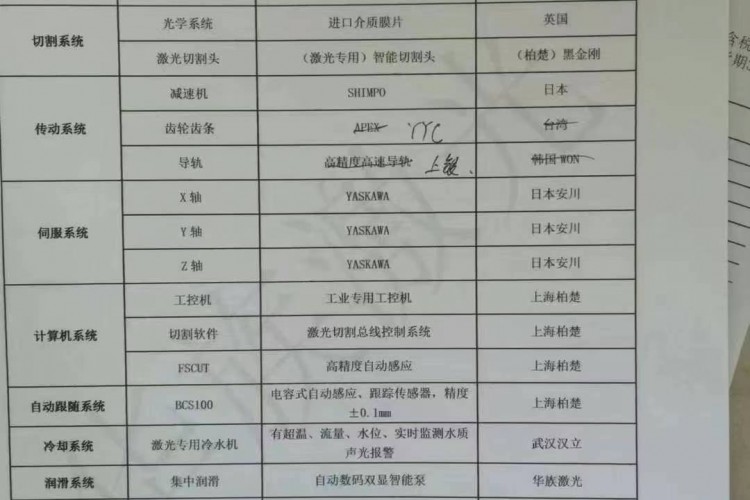 光学系统 进口介质膜片 英国
切割系统
激光切割头 （激光专用）智能切割头 （柏楚）黑金刚
减速机 SHIMPO 日本
传动系统 齿轮齿条 APEX YYC 台湾
导轨 高精度高速导轨 上银 韩国 WON
X 轴 YASKAWA 日本安川
伺服系统 Y 轴 YASKAWA 日本安川
Z 轴 YASKAWA 日本安川
工控机 工业专用工控机 上海柏楚
计算机系统 切割软件 激光切割总线控制系统 上海柏楚
FSCUT 高精度自动感应 上海柏楚
自动跟随系统 BCS100 电容式自动感应、跟踪传感器，精度 上海柏楚
±0.1mm
冷却系统 激光专用冷水机 有超温、流量、水位、实时监测水质 武汉汉立
声光报警
润滑系统 集中润滑 自动数码双显智能泵 华族激光
含税